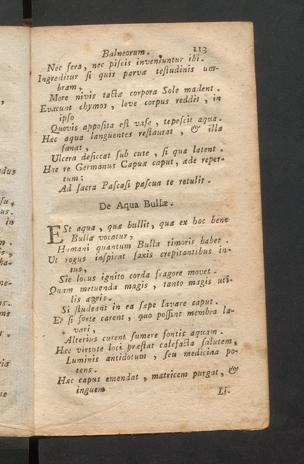 Balneorum. 113
Nec fera, nec piscis inveniuntur ibi.
Ingreditur si quis parva testudinis um-
bram,
More nivis tacta corpora Sole madent.
Evacuat chymos, leve corpus reddit, in
ipso
Quovis apposita est vase, tepescit aqua.
Hæc aqua languentes restaurat, & illa
sanat,
Ulcera desiccat sub cute, si qua latent.
Hac re Germanus Capuæ caput, ade reper-
tum:
Ad sacra Pascasi pascua te retulit.
De Aqua Bullæ.
ESt aqua, quæ bullit, quæ ex hoc bene
Bulla vocatur,
Humani quantum Bulla timoris habet.
Ut rogus inspicat saxis crepitantibus in-
tus,
Sic locus ignito corda fragore movet.
Quam metuenda magis, tanto magis uti-
lis ægris.
Si studeant in ea sæpe lavare caput.
Et si forte carent, quo possint membra la-
vari,
Alterius curent sumere fontis aquam.
Hæc virtute loci præstat calefacta salutem,
Luminis antidotum, seu medicina po-
tens.
Hæc caput emendat, matricem purgat, &
inguem
Li.